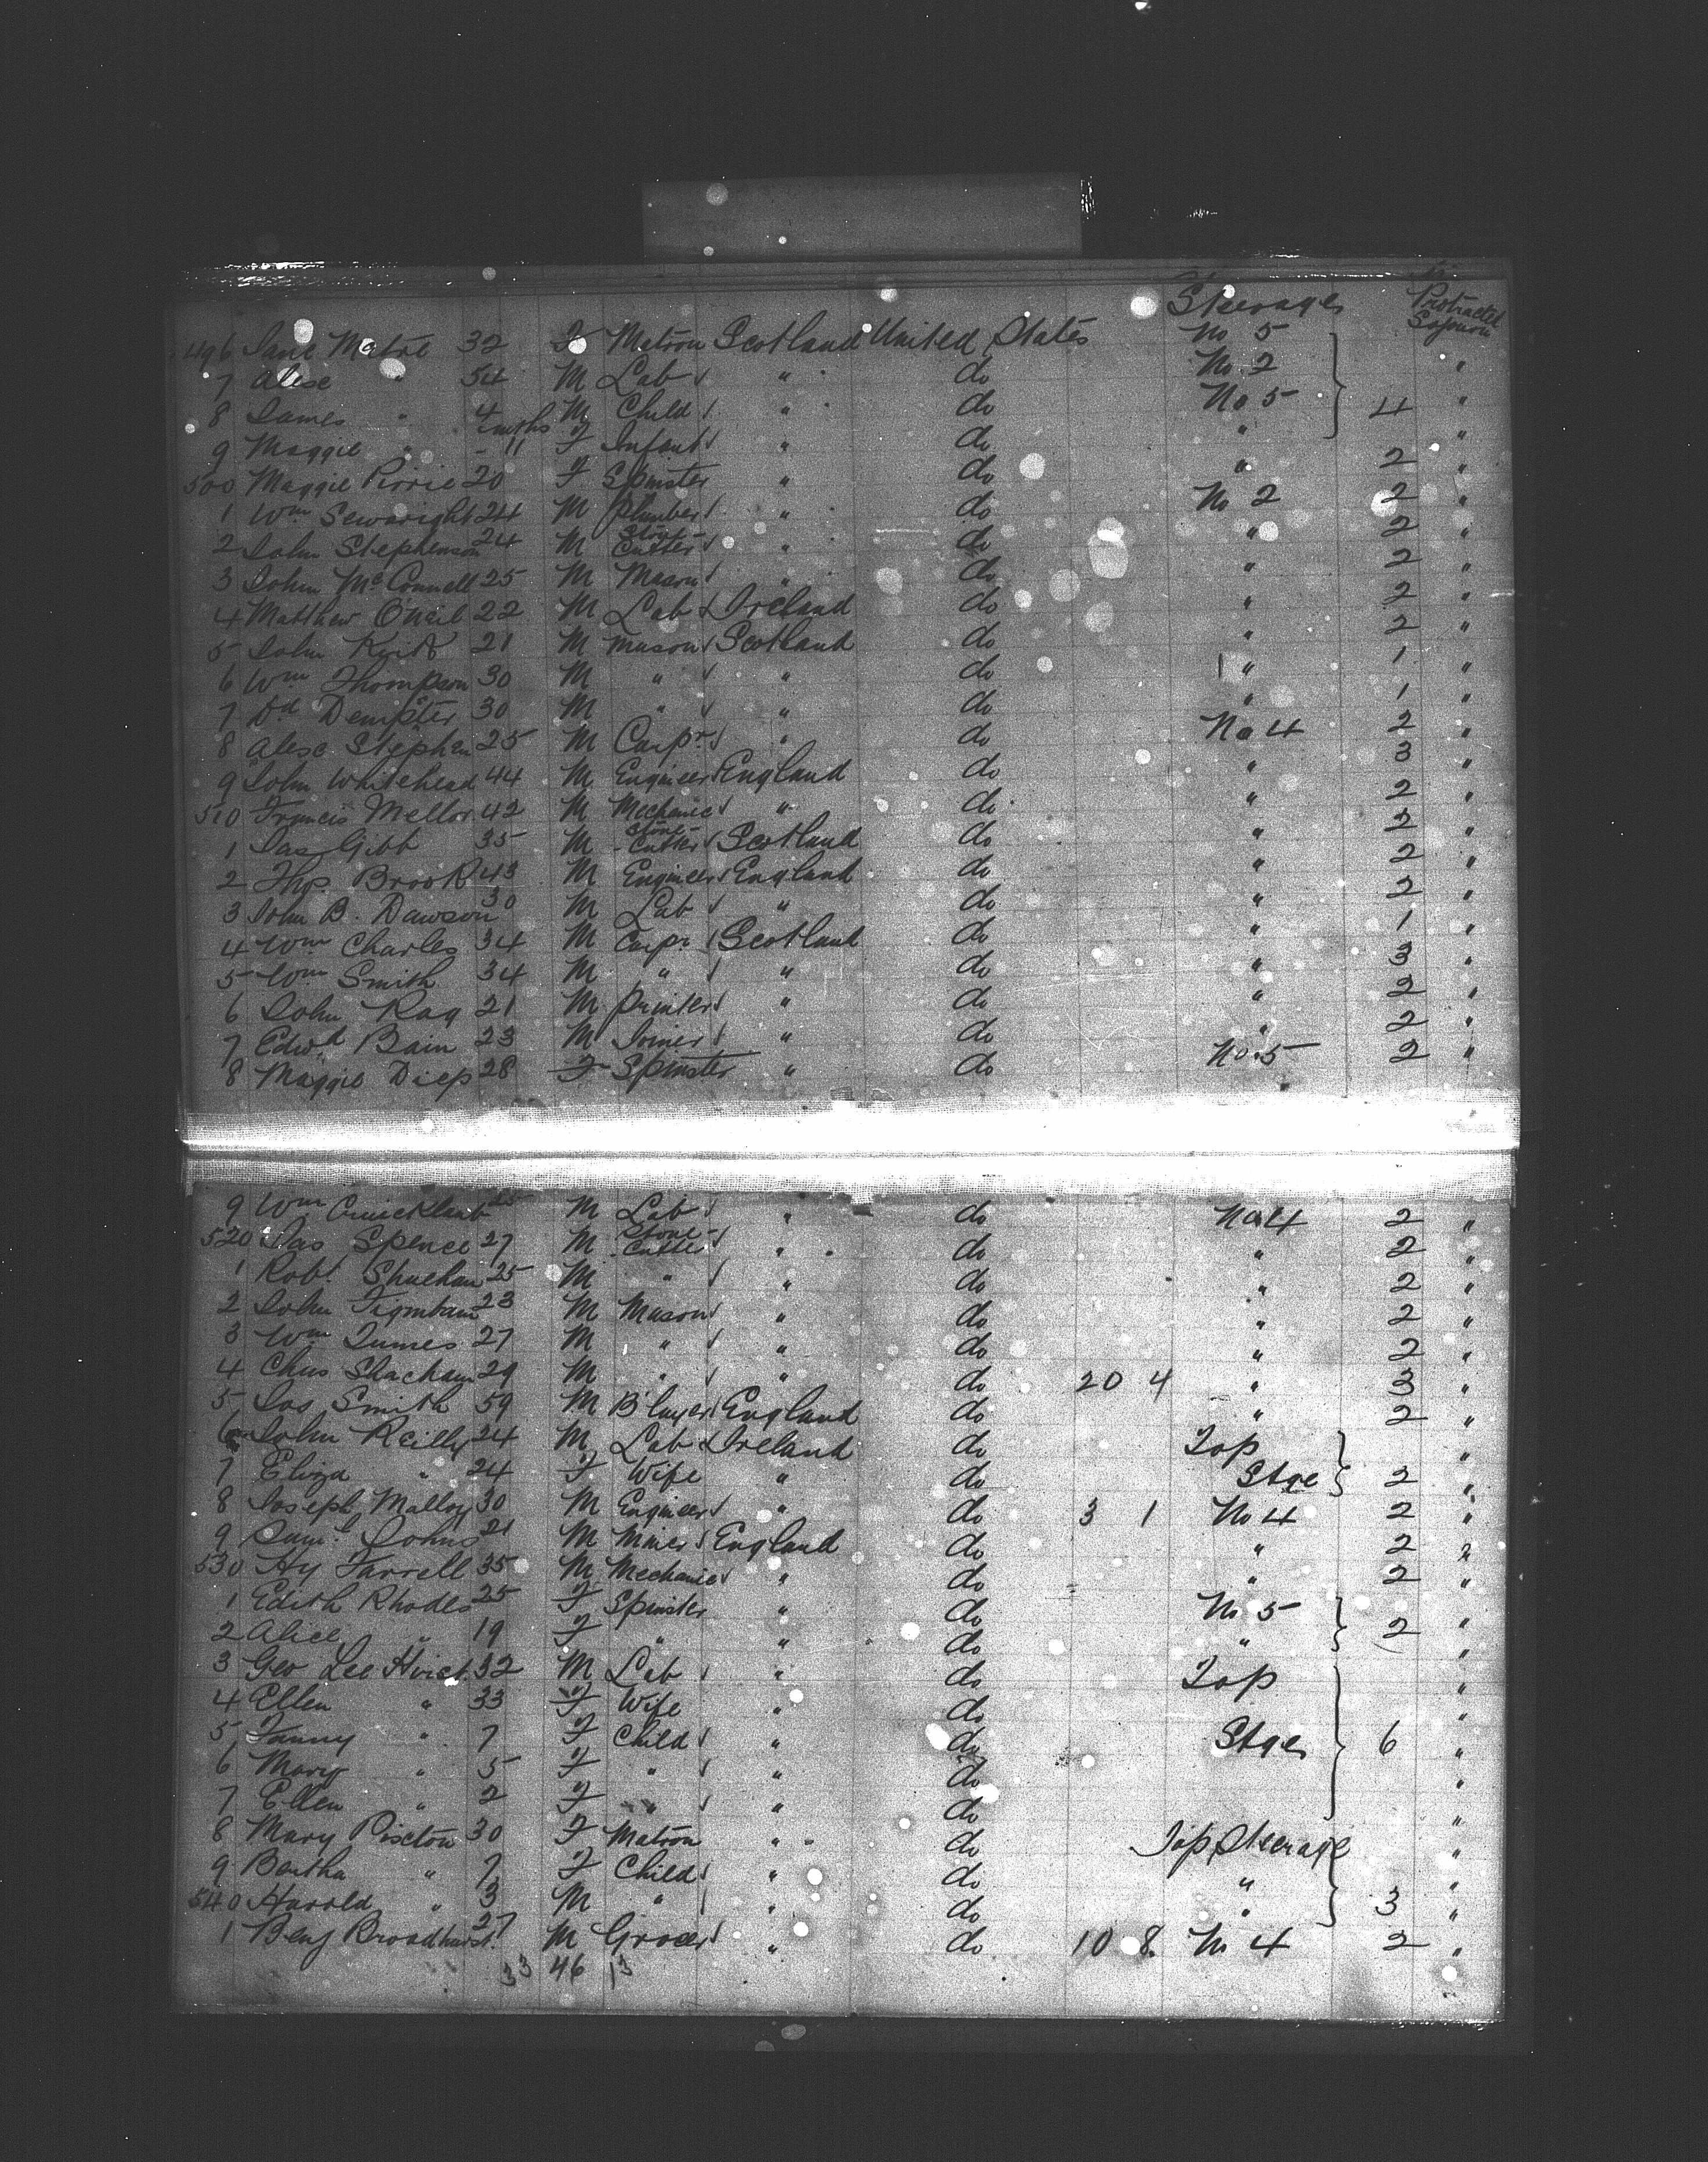 Steerages Protracted Sojourn
496 Jane 32 F Matron Scotland United States No 5
7 Alexr " 54 M Lab " do No 2 "
8 James " 4 M Child " do No 5 4 "
9 Maggie " - 11 mths F Infant " do " "
500 Maggie Pirrie 20 F Spinster " do " 2 "
1 Wm Sewright 24 M Plumber " do No 2 2 "
2 John Stephenson 24 M Stone Cutter " do " 2 "
3 John McConnell 25 M Mason " do " 2 "
4 Matthew ONeil 22 M Lab Ireland do " 2 "
5 John Keith 21 M Mason Scotland do " 2 "
6 Wm Thompson 30 M " " do " 1 "
7 Dd Dempster 30 M " " do " 1 "
8 Alexr Stephen 25 M Carpr " do No 4 2 "
9 John Whitehead 44 M Engineer England do " 3 "
510 Francis Mellor 42 M Mechanic " do " 2 "
1 Jas Gibb 35 M Stone-Cutter Scotland do " 2 "
2 Thos Brook 43 M Engineer England do " 2 "
3 John B. Dawson 30 M Lab " do " 2 "
4 Wm Charles 34 M Carpr Scotland do " 1 "
5 Wm Smith 34 M " " do " 3 "
6 John Ray 21 M Printer " do " 2 "
7 Edwd Bain 23 M Joiner " do " 2 "
8 Maggie 28 F Spinster " do No. 5 2 "
9 Wm Cruickshank M Lab " do No 4 2 "
520 Jas Spence 27 M Stone-Cutter " do " 2 "
1 Robt 25 M " " do " 2 "
2 John 23 M Mason " do " 2 "
3 Wm 27 M " " do " 2 "
4 Chas 29 M " " do 20 4 " 3 "
5 Jos Smith 59 M B'layer England do " 2 "
6 John Reilly 24 M Lab Ireland do Top "
7 Eliza " 24 F Wife " do Stge 2 "
8 Joseph Malloy 30 M Engineer " do 3 1 No 4 2 "
9 Saml Johns 21 M Miner England do " 2 "
530 Hy Farrell 35 M Mechanic " do " 2 "
1 Edith Rhodes 25 F Spinster " do No 5 "
2 Alice " 19 F " " do " 2 "
3 Geo Lee 32 M Lab " do Top "
4 Ellen " 33 F Wife " do "
5 Fanny " 7 F Child " do Stge 6 "
6 Mary " 5 F " " do "
7 Ellen " 2 F " " do "
8 Mary 30 F Matron " do Top Steerage "
9 Bertha " 7 F Child " do " "
540 Harold " 3 M " " do " 3 "
1 Benj Broadhurst 27 M Grocer " do 10 8 No 4 2 "
33 46 13